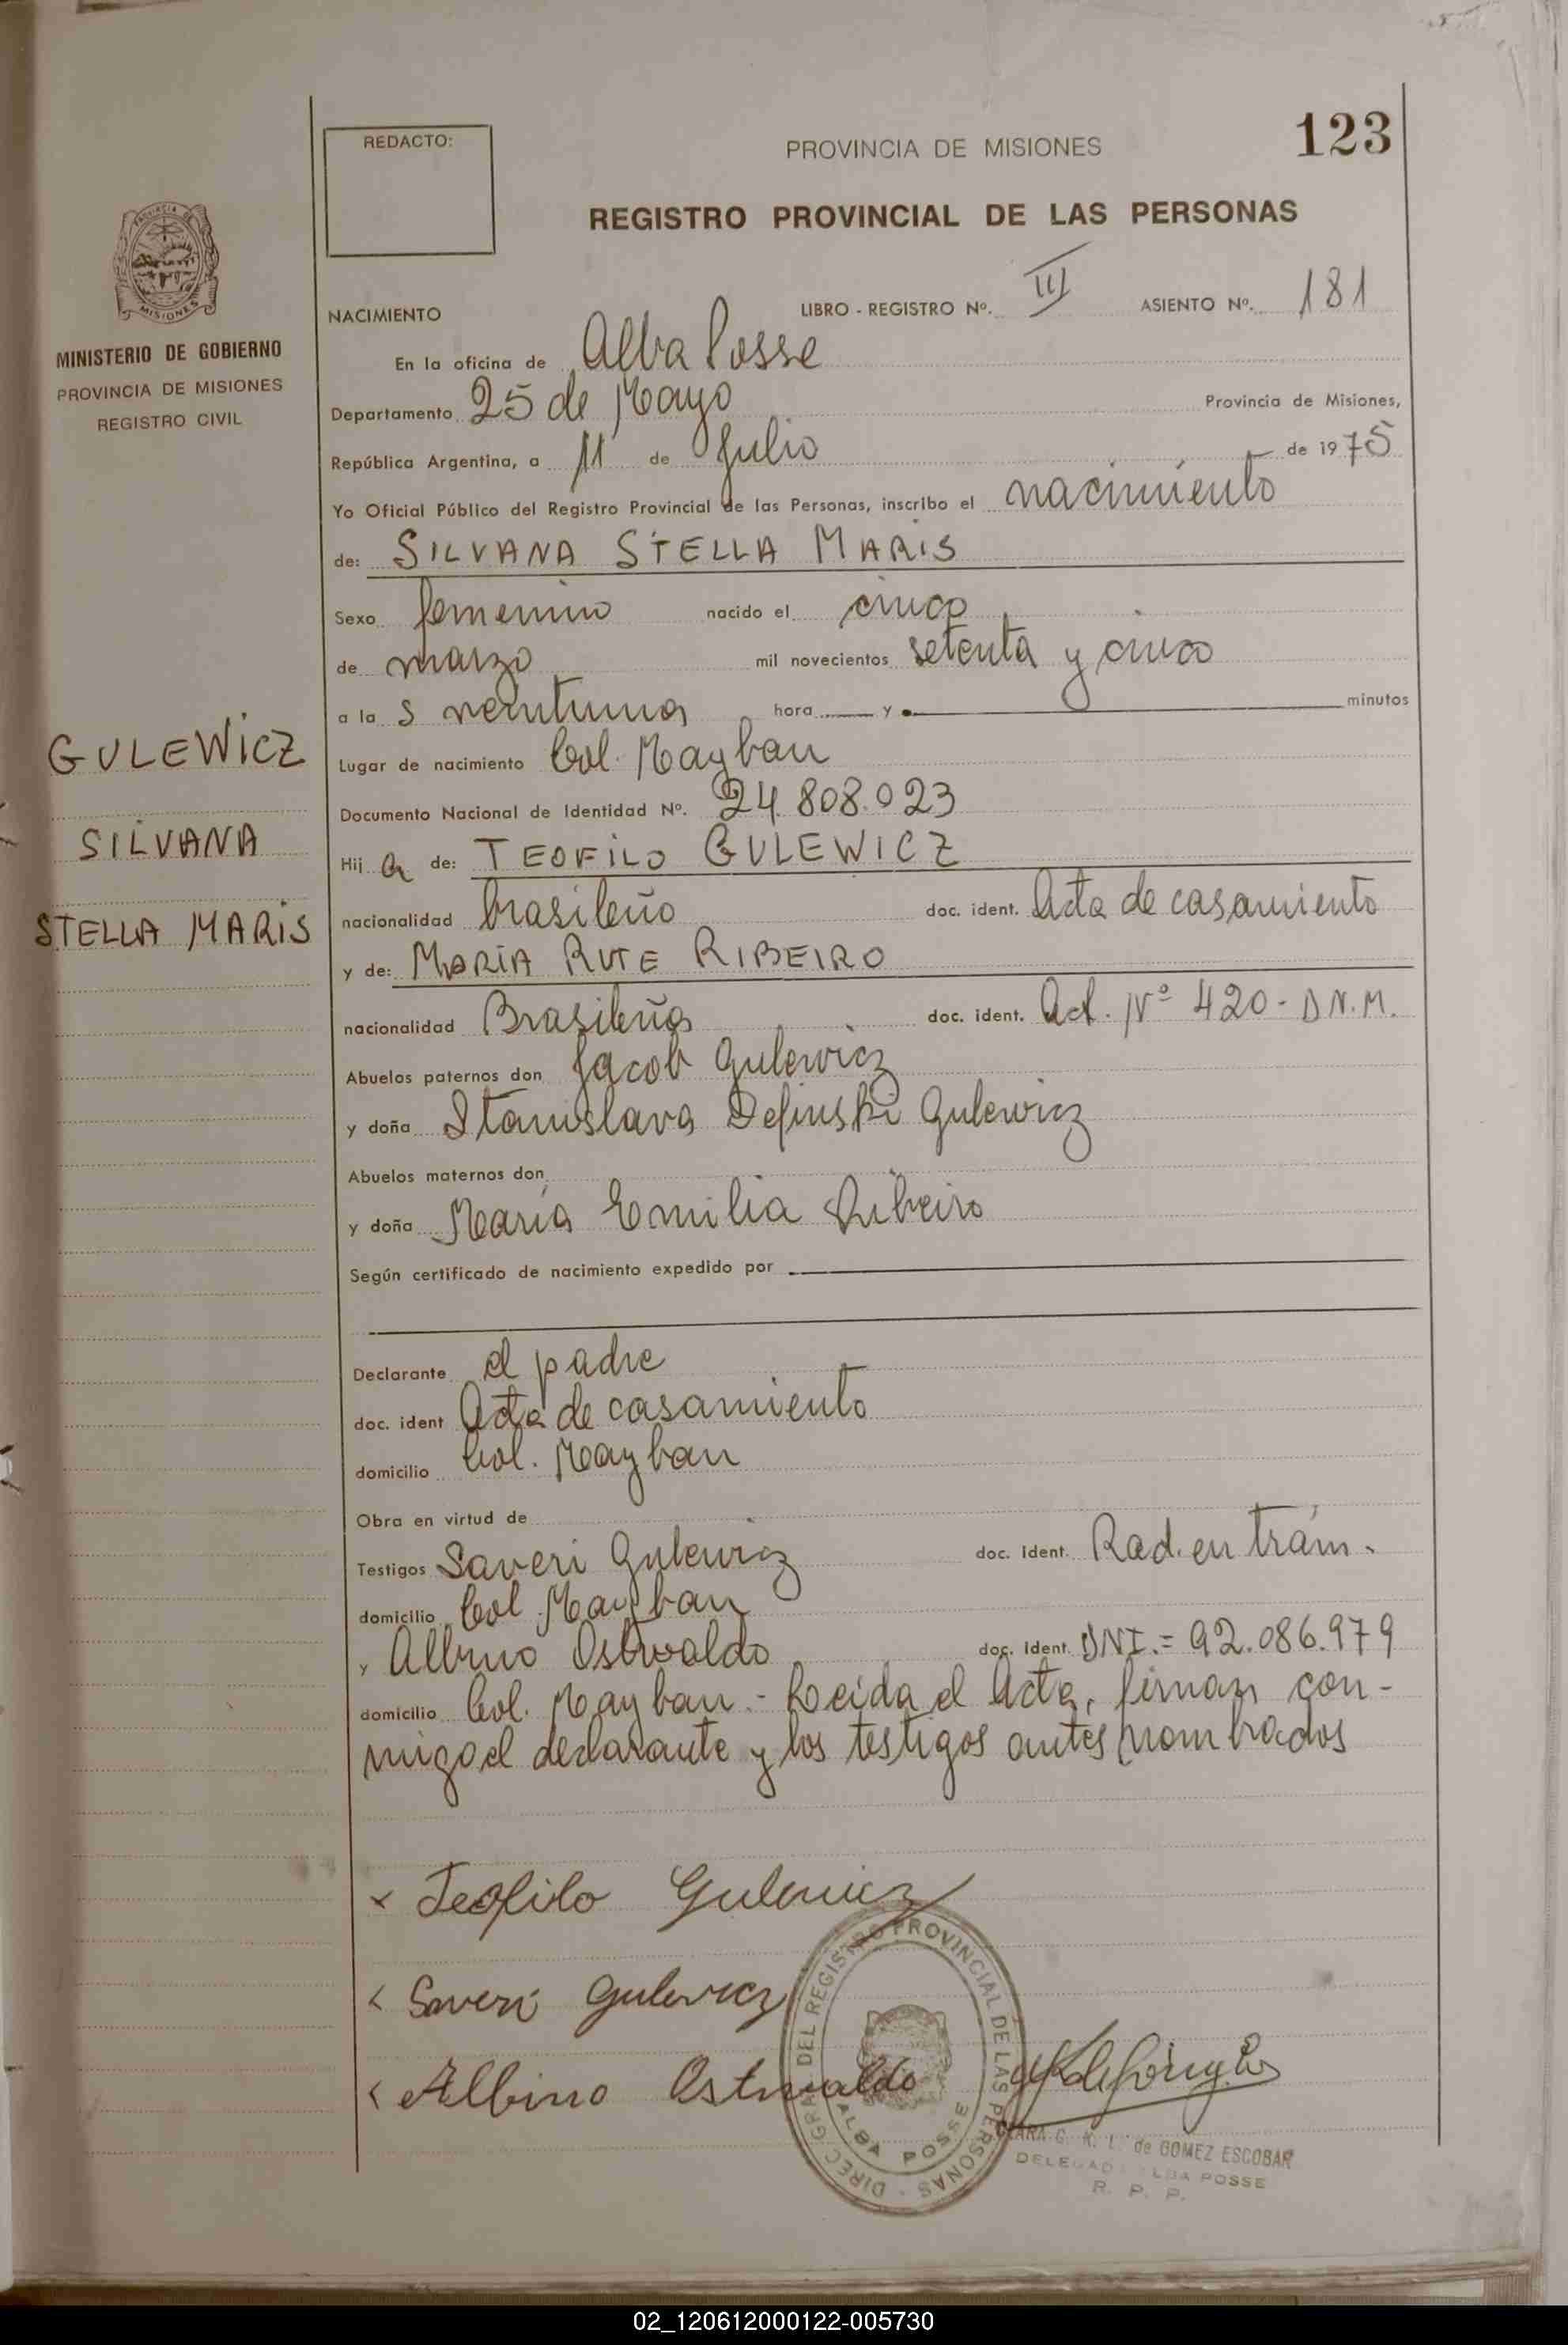 123
REDACTO:
PROVINCIA DE MISIONES
REGISTRO PROVINCIAL DE LAS PERSONAS
MISIONES
MINISTERIO DE GOBIERNO
PROVINCIA DE MISIONES
REGISTRO CIVIL
GULEWICZ
SILVANA
STELLA MARIS
NACIMIENTO LIBRO - REGISTRO Nº. III ASIENTO Nº. 181
En la oficina de Alba Posse
Departamento 25 de Mayo Provincia de Misiones,
República Argentina, a 11 de Julio de 1975
Yo Oficial Público del Registro Provincial de las Personas, inscribo el nacimiento
de: SILVANA STELLA MARIS
Sexo femenino nacido el cinco
de marzo mil novecientos setenta y cinco
a la s veintiuna hora y minutos
Lugar de nacimiento Col. Mayban
Documento Nacional de Identidad Nº. 24.808.023
Hij a de: TEOFILO GULEWICZ
nacionalidad brasileño doc. ident. Acta de casamiento
y de: MARIA RUTE RIBEIRO
nacionalidad Brasileña doc. ident. Act. Nº 420 - D.N.M.
Abuelos paternos don Jacob Gulewicz
y doña Stanislava Gulewicz
Abuelos maternos don
y doña María Emilia Ribeiro
Según certificado de nacimiento expedido por
Declarante el padre
doc. ident Acta de casamiento
domicilio Col. Mayban
Obra en virtud de
Testigos Saveri Gulewicz doc. Ident. Rad. en trám.
domicilio Col. Mayban
y Albino Ostwaldo doc. Ident. DNI.= 92.086.979
domicilio Col. Mayban.- Leída el Acta, firman con-
migo el declarante y los testigos antes nombrados
x Teofilo Gulewicz
Saveri Gulewicz
Albino Ostwaldo
DIREC. GRAL. DEL REGISTRO PROVINCIAL DE LAS PERSONAS
ALBA POSSE
CLARA G. K. L. de GOMEZ ESCOBAR
DELEGADA ALBA POSSE
R. P. P.
02_120612000122-005730